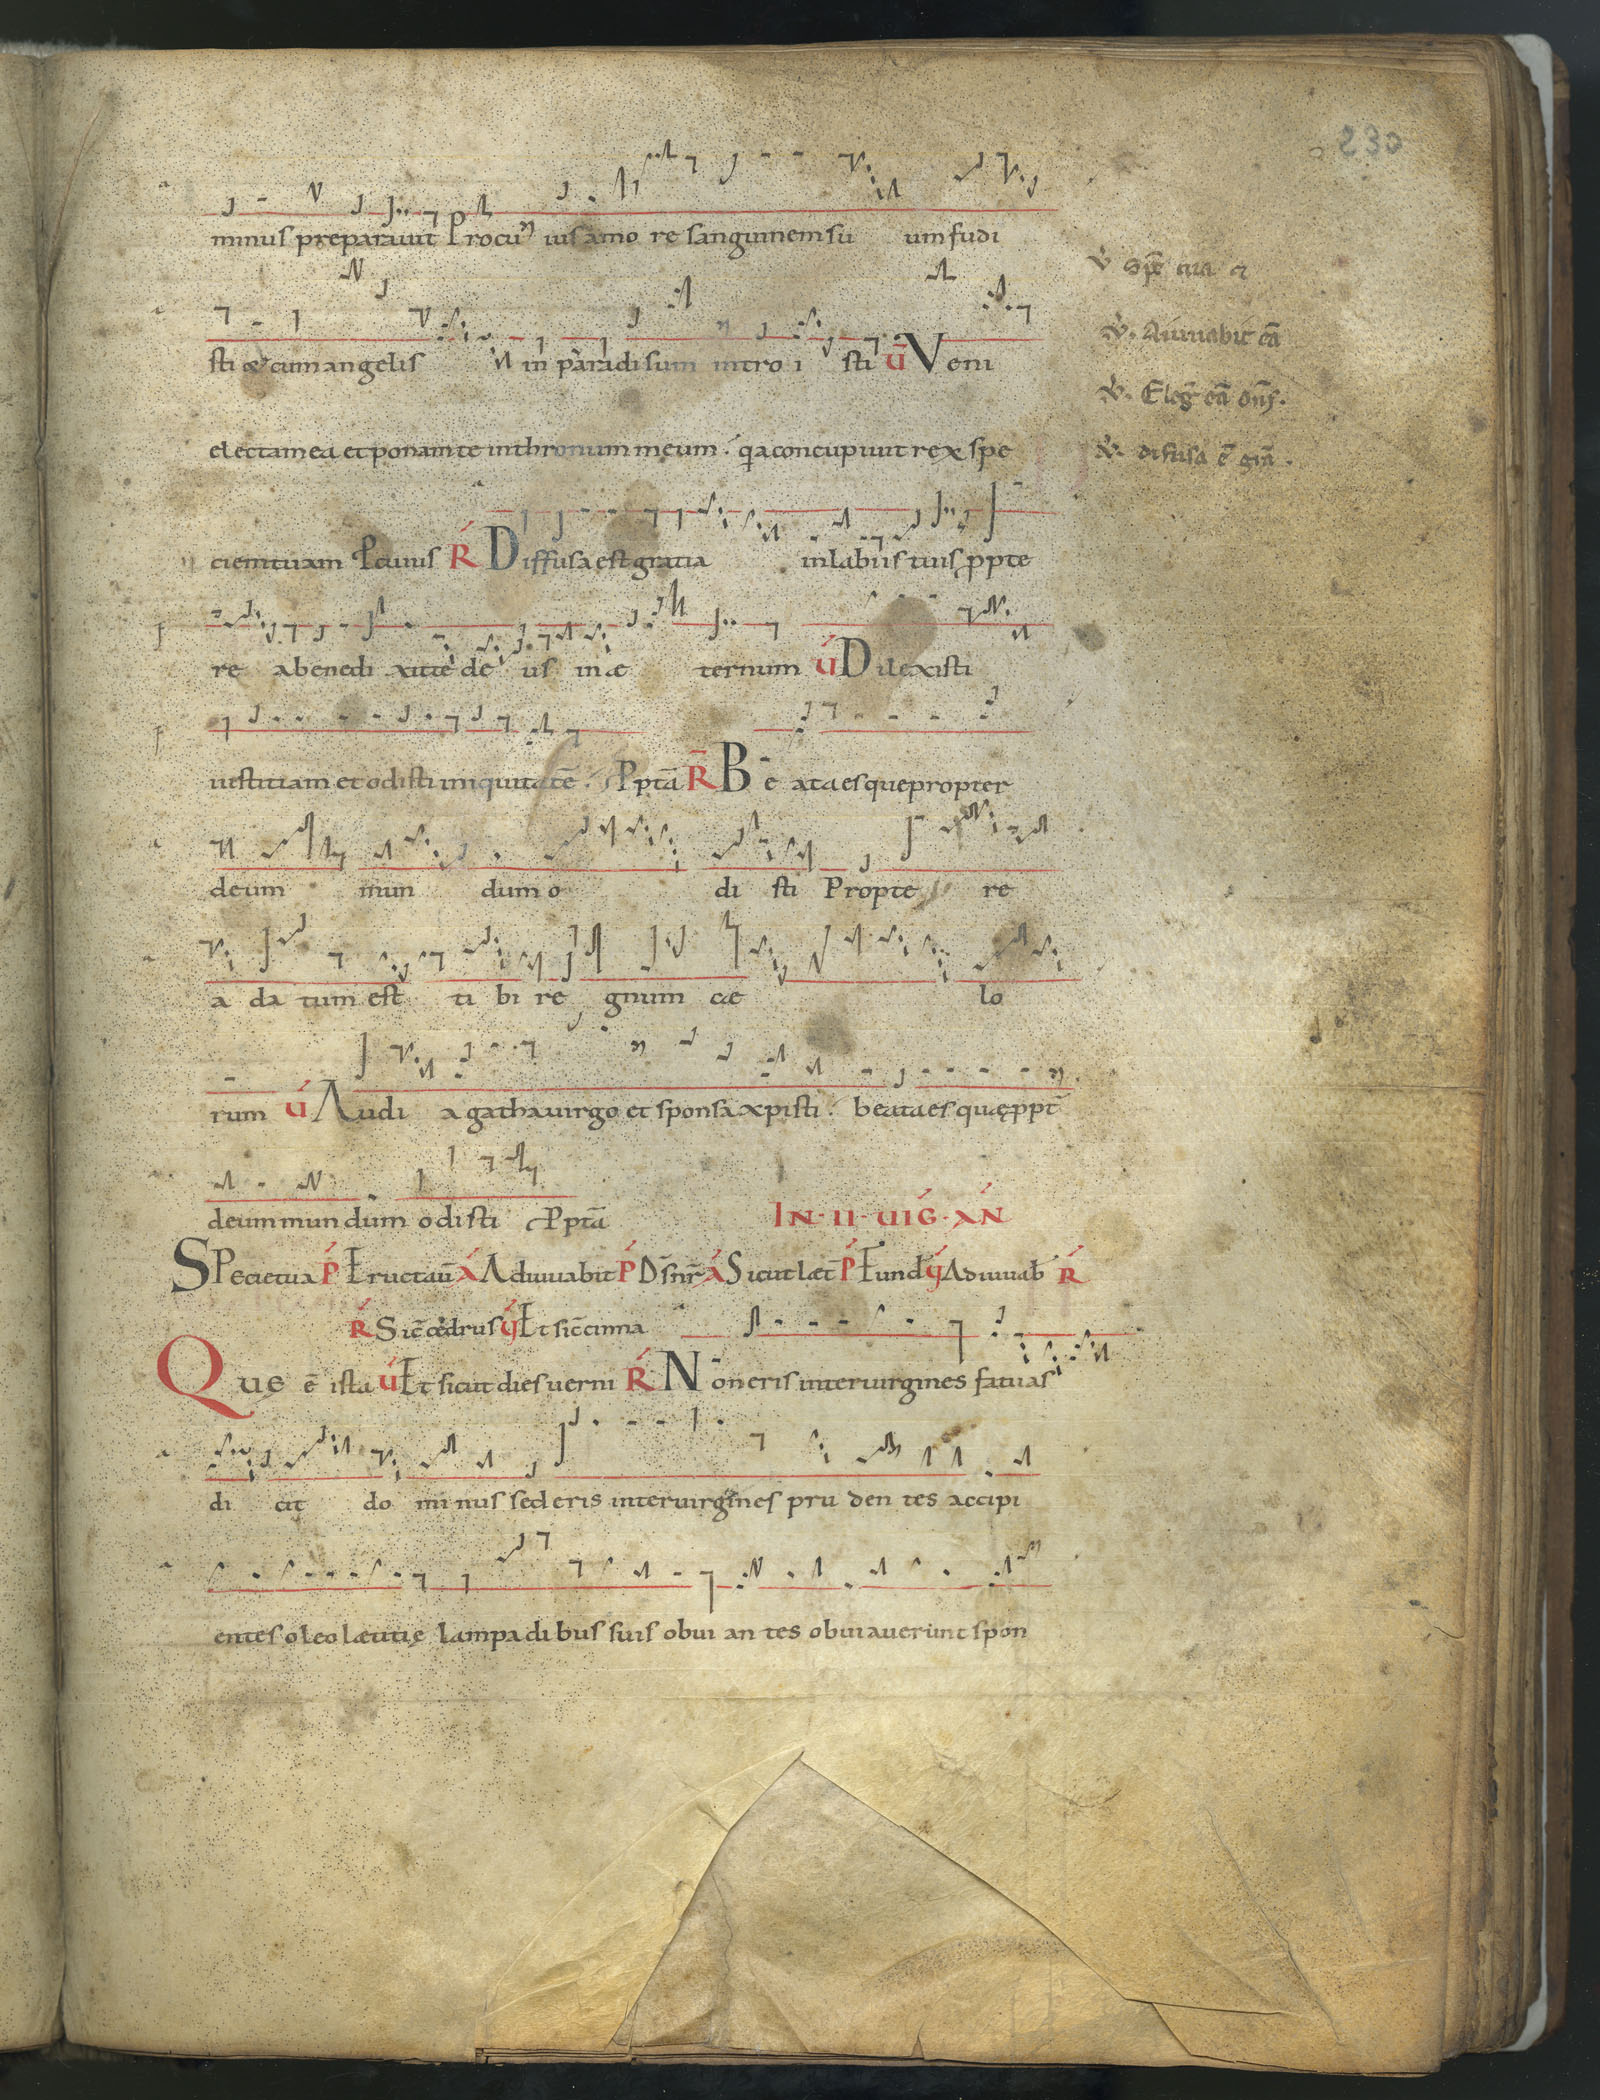 230
minus preparauit Pro cui9 ius amo re sanguinem su um fudi
sti & cum angelis in paradisum intro i sti V̄ Veni
electa mea et ponam te in thronum meum. q̇a concupiuit rex spe
ciem tuam Pcuius R̄ Diffusa est gratia in labiis tuis ꝓpte
re a benedi xit te de us in æ ternum V̄ Dilexisti
iustitiam et odisti iniquitatē. Pptā R̄ Be ata es que propter
deum mun dum o di sti Propte re
a da tum est ti bi re gnum cæ lo
rum V̄ Audi agatha uirgo et sponsa xpisti. beata es quę ꝓpt̄
deum mun dum odisti Pptā IN · II · UIG · AN
SPecie tua P Eructau̅ A Adiuuabit P Dn̄s nr̄ A Sicut læt̄ P Fund V̄ Adiuuab R̄
R̄ Sic̄ cędrus V̄ Et sic̄ cinna
Que ē ista V̄ Et sicut dies uerni R̄ Non eris inter uirgines fatuas
di cit do mi nus sed eris inter uirgines pru den tes accipi
entes oleo lætitię lampadi bus suis obui an tes obuiauerunt spon
V̄ Spē tua &
V̄. Aiuuabit eā
V̄. Eleḡ eā dn̄s.
V̄. difusa ē grā.